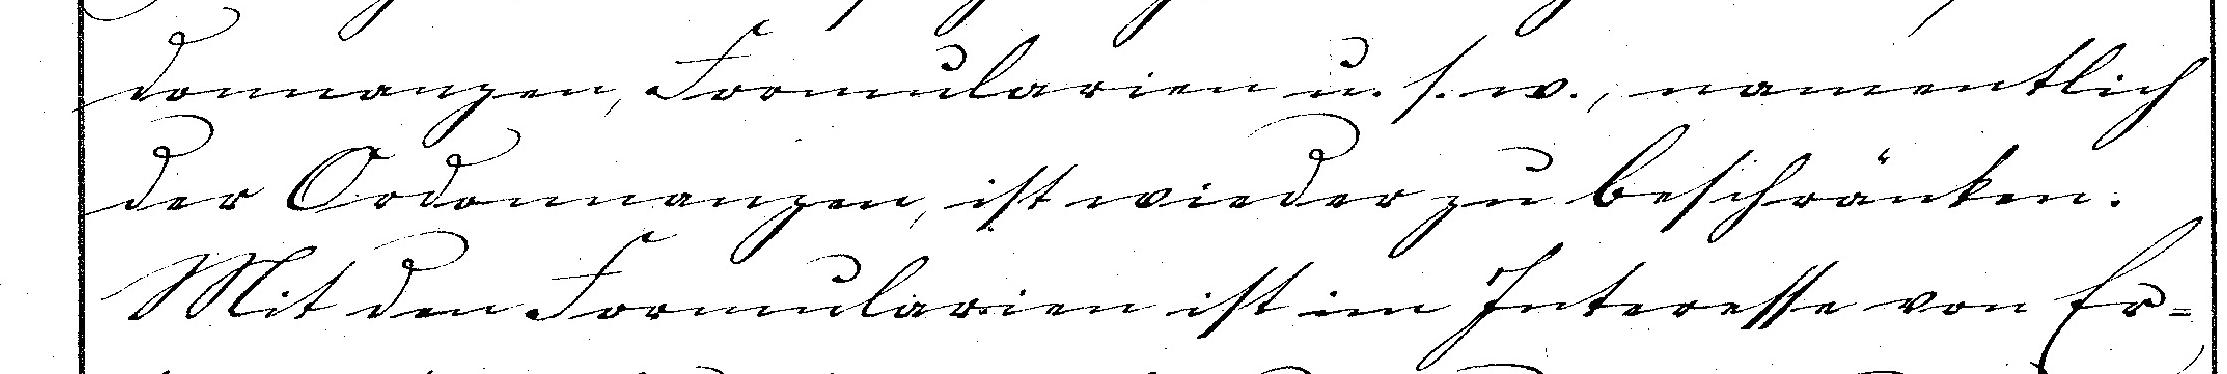 donnanzen, Formularien u. s. w., namentlich
der Ordonnanzen, ist wieder zu beschränken.
Mit den Formularien ist im Interesse von Er-